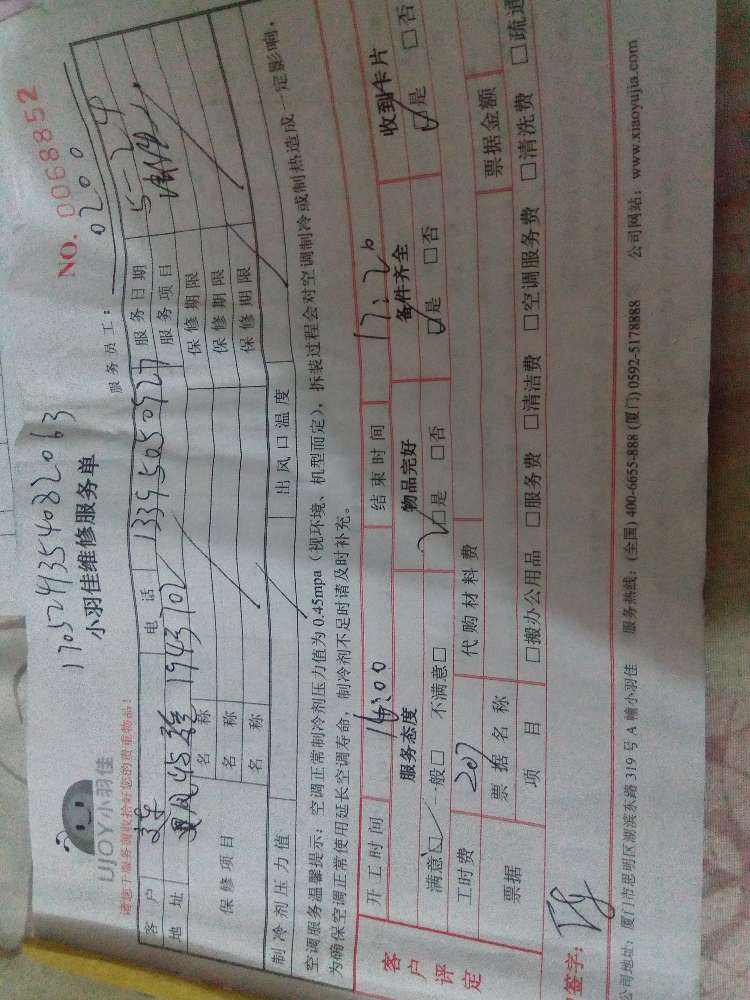 1705241354082063
NO. 0068852
UJOY小羽佳
小羽佳维修服务单
服务员工: 0200
请您在服务前收拾好您的贵重物品!
客户 电话 13395050927 服务日期 5-24
地址 1943702 服务项目
保修项目 名称 保修期限
名称 保修期限
名称 保修期限
制冷剂压力值 出风口温度
空调服务温馨提示: 空调正常制冷剂压力值为0.45mpa(视环境、机型而定), 拆装过程会对空调制冷或制热造成一定影响,
为确保空调正常使用延长空调寿命, 制冷剂不足时请及时补充。
客户评定 开工时间 16:00 结束时间 17:20
服务态度 物品完好 备件齐全 收到卡片
满意□ 一般□ 不满意□ □是 □否 □是 □否 □是 □否
工时费 207 代购材料费
票据 票据名称 票据金额
项目 □搬办公用品 □服务费 □清洁费 □空调服务费 □清洗费 □疏通
签字:
公司地址: 厦门市思明区湖滨东路319号A幢小羽佳 服务热线: (全国) 400-6655-888 (厦门) 0592-5178888 公司网站: www.xiaoyujia.com